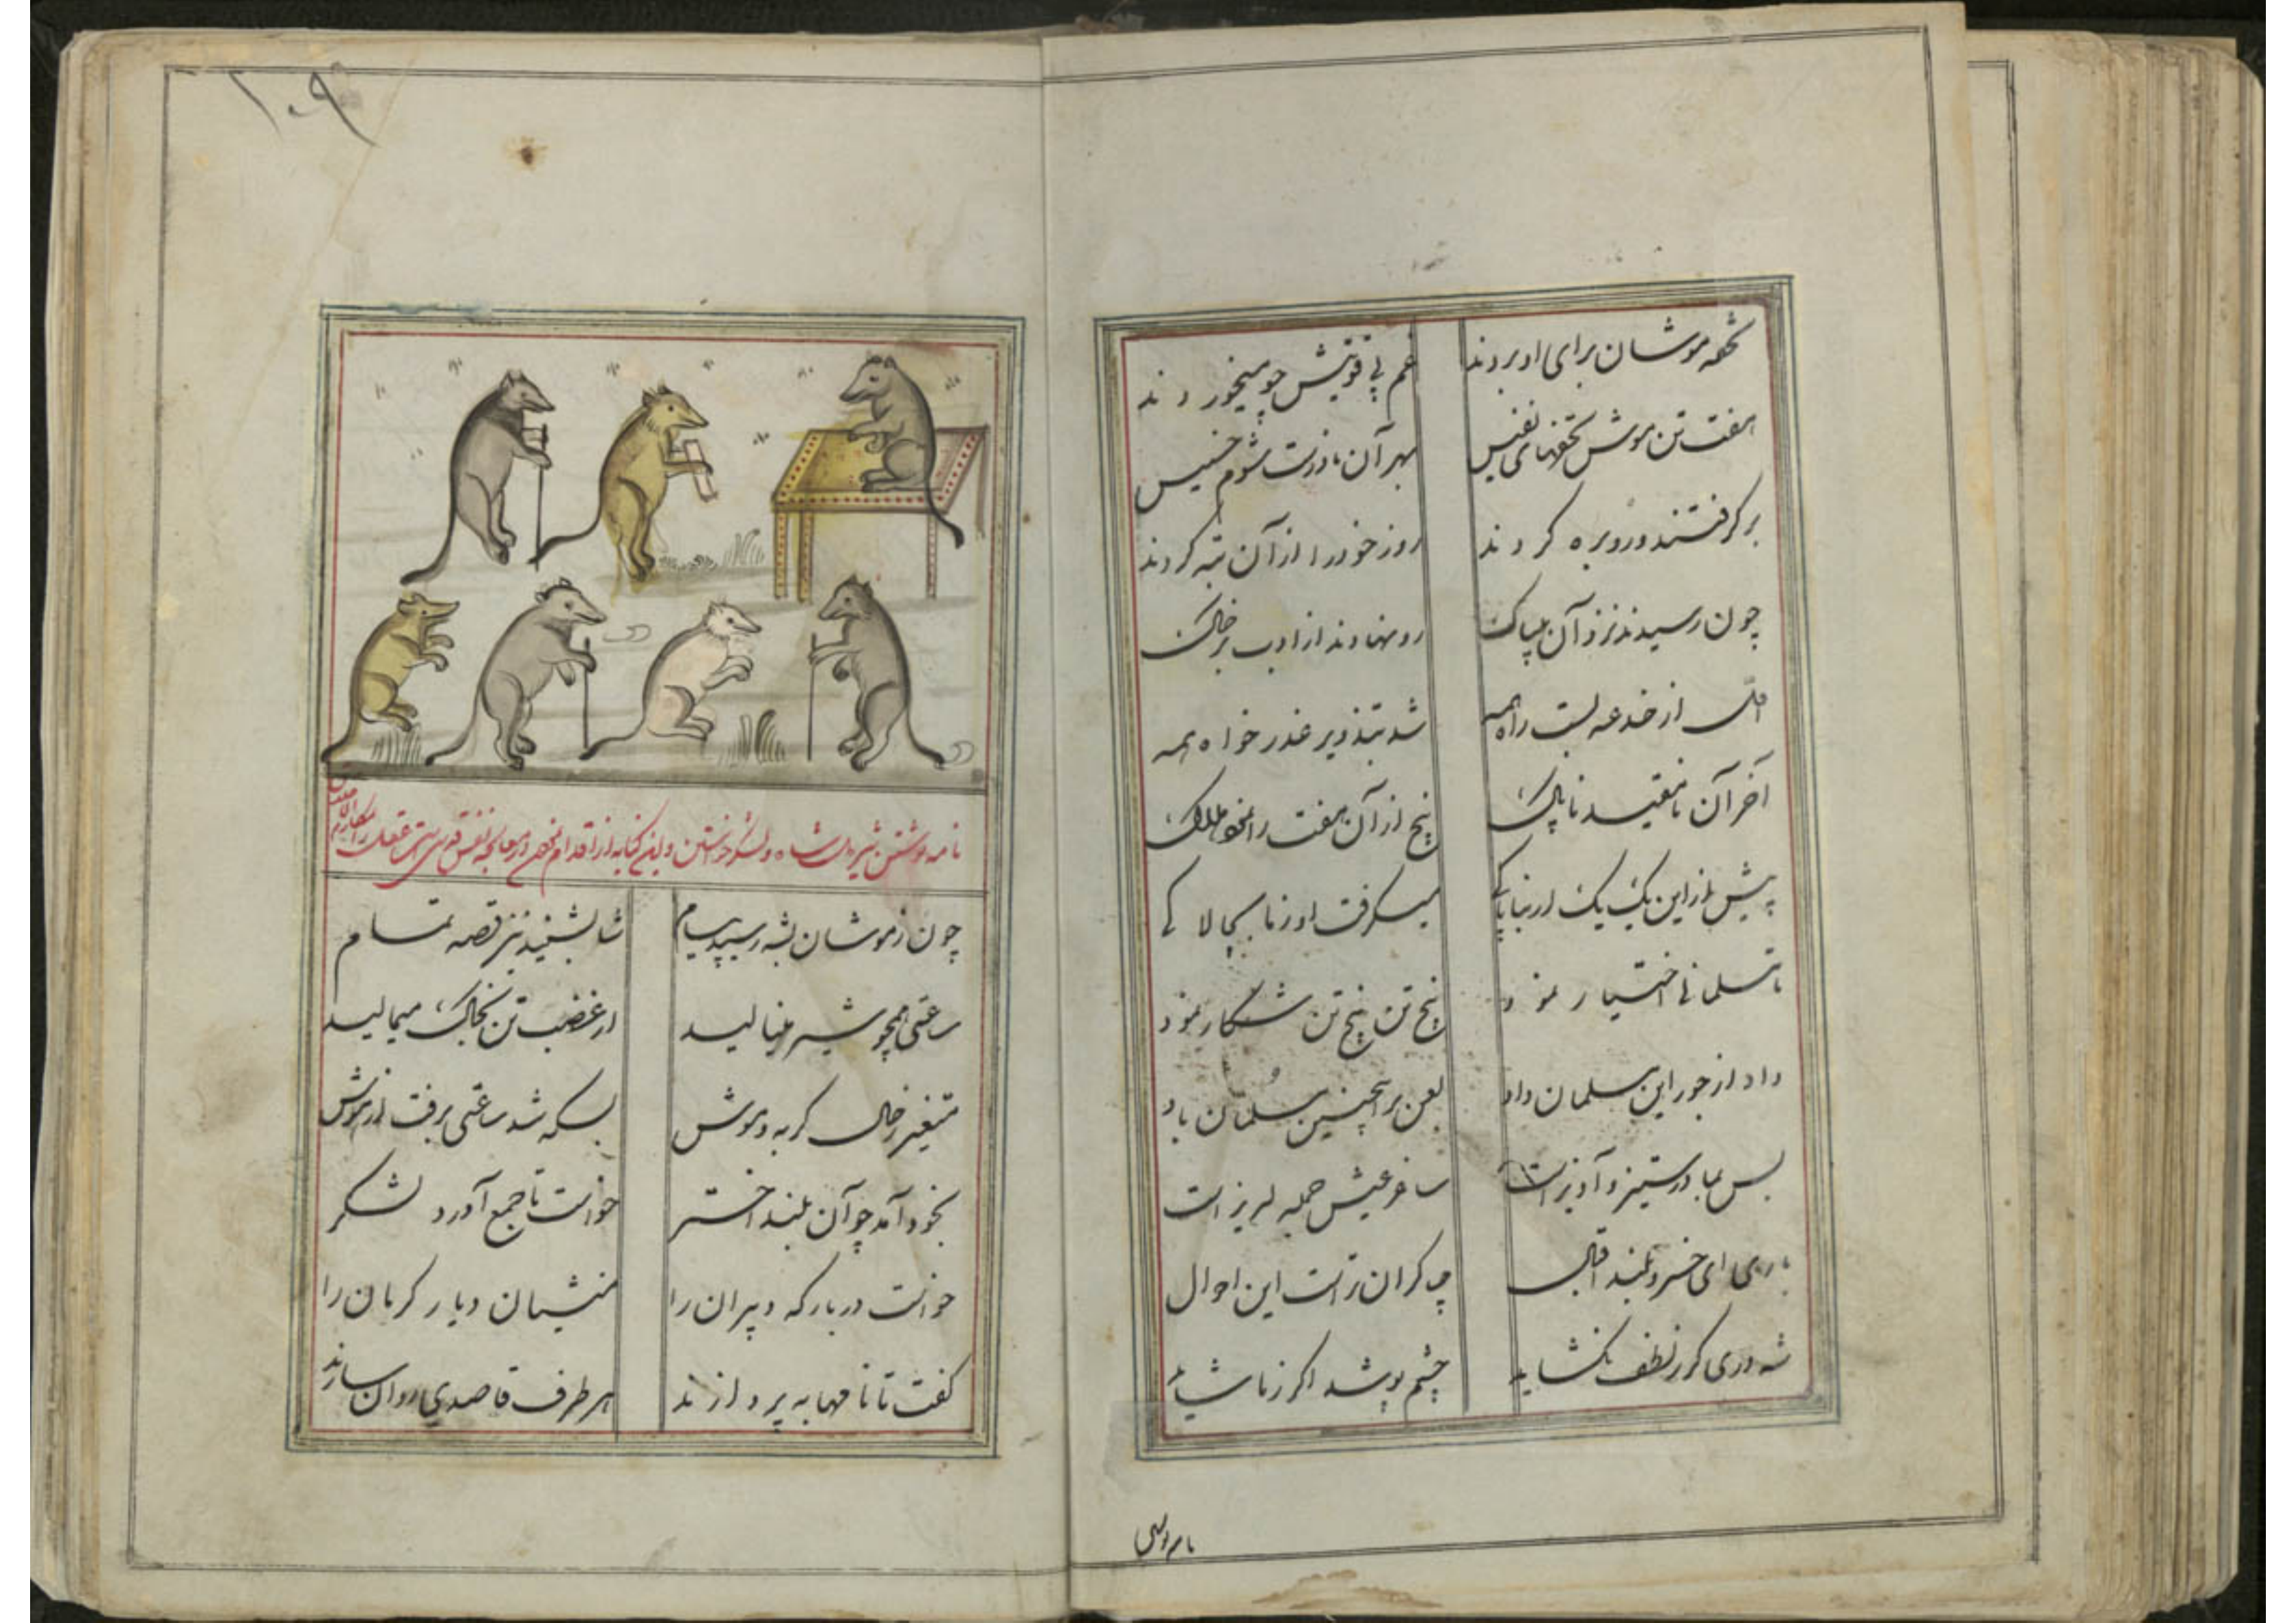 تحفه موشان برای او بردند
غم بی قوتیش چو میخوردند
هفت تن موش تحفهای نفیس
بهر آن نادرست شوم خسیس
بر گرفتند و رو بره کردند
روز خود را از آن تبه کردند
چون رسیدند نزد آن بیباک
رو نهادند از ادب بر خاک
از خدعه بست راه همه
شد بتذویر عذر خواه همه
آخر آن نامقید ناپاک
پنج از آن هفت را نمود هلاک
پیش از این یک یک از ناپاکی
میگرفت او ز ما بچالاکی
تا مسلمانی اختیار نمود
پنج تن پنج تن شکار نمود
داد از جور این مسلمان داد
لعن بر اینچنین مسلمان باد
بس بما در ستیز و آویز است
ساغر عیش جمله لبریز است
باری ای خسرو بلند اقبال
چه گران تر است این احوال
شه دری گر ز لطف بگشاید
چشم پوشد اگر ز ما شاید
۱۰۹
نامه نوشتن شیریل شاه و لشکر خواستن و این کنایه از اقدام در معالجه نفس
چون ز موشان بشه رسید پیام
شاه بشنید نیز قصه تمام
ساعتی همچو شیر مینالید
از غضب تن بخاک میمالید
متغیر ز حال گربه و موش
بسکه شد ساعتی برفت از هوش
بخود آمد چو آن بلند اختر
خواست تا جمع آورد لشکر
خواست در بارگه دبیران را
منشیان دیار کرمان را
گفت تا نامها بپردازند
هر طرف قاصدی روان سازند